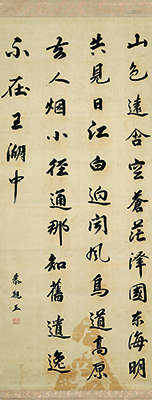 山色遠含空蒼茫澤國東海明
先見日江白迥聞風鳥道高原
去人烟小徑通那知舊遺逸
不在五湖中
恭親王